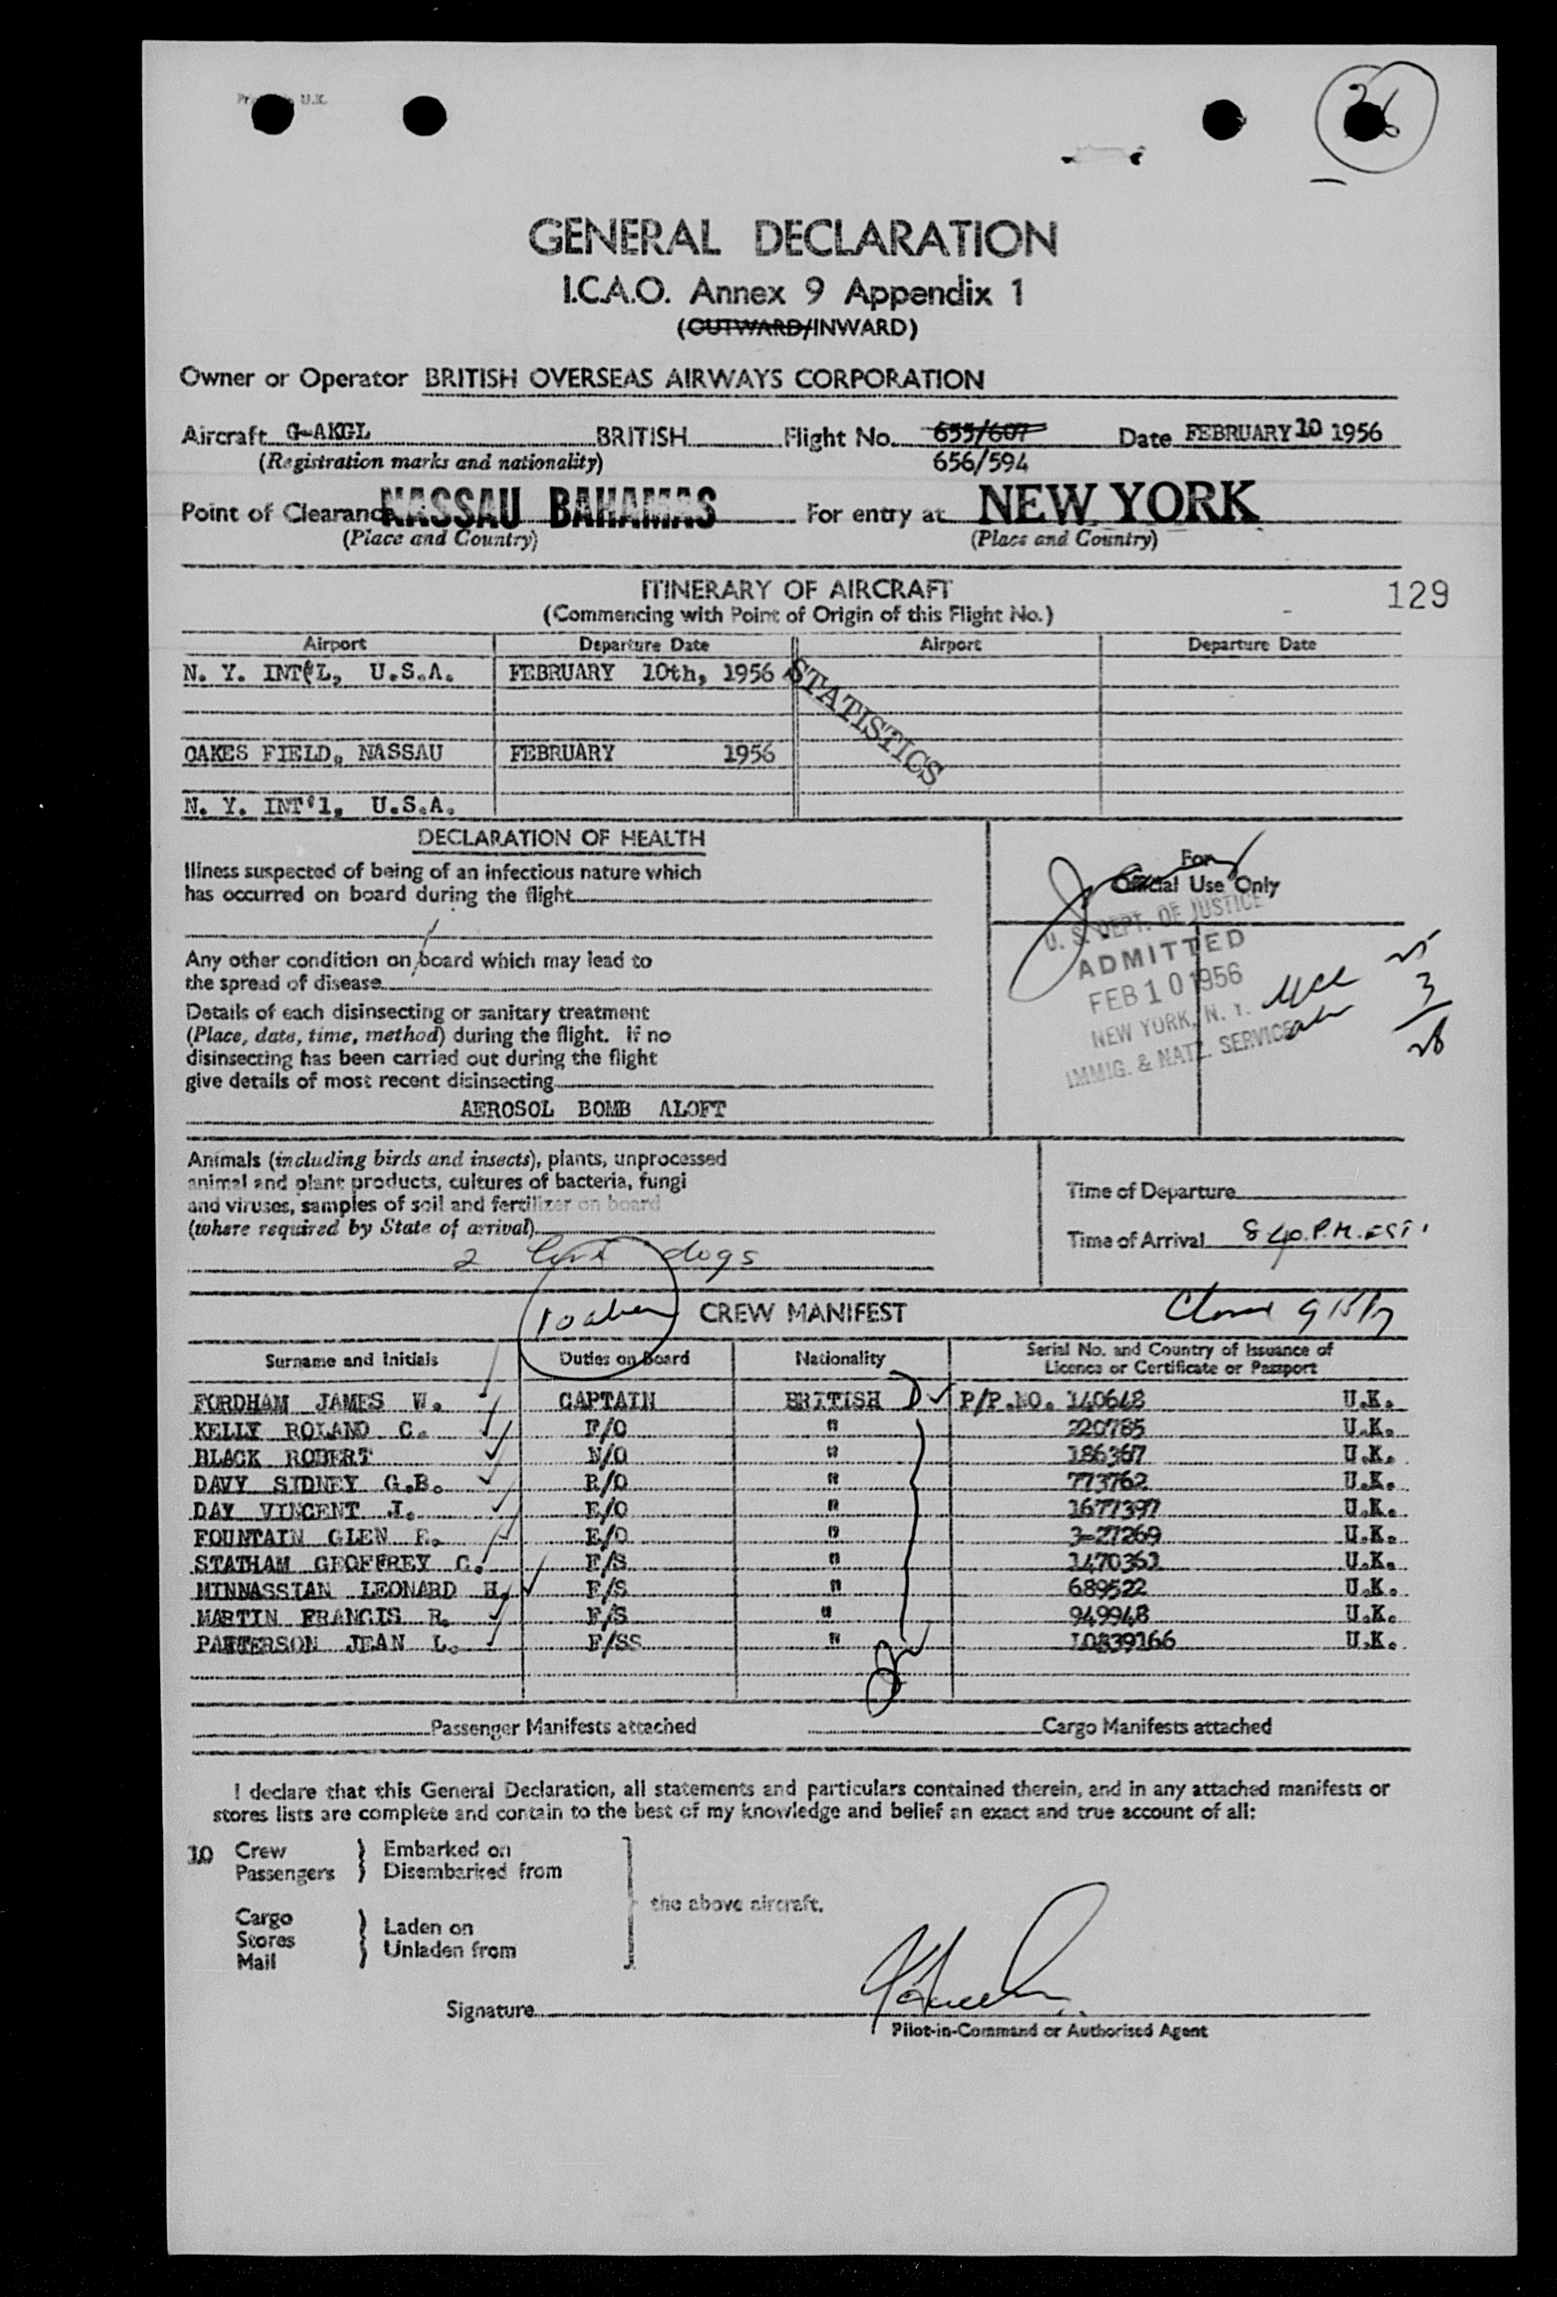 U.K.
26
GENERAL DECLARATION
I.C.A.O. Annex 9 Appendix 1
(OUTWARD/INWARD)
Owner or Operator BRITISH OVERSEAS AIRWAYS CORPORATION
Aircraft G-AKGL BRITISH Flight No. 655/607 Date FEBRUARY 10 1956
(Registration marks and nationality) 656/594
Point of Clearance NASSAU BAHAMAS For entry at NEW YORK
(Place and Country) (Place and Country)
ITINERARY OF AIRCRAFT 129
(Commencing with Point of Origin of this Flight No.)
Airport Departure Date Airport Departure Date
N. Y. INT'L, U.S.A. FEBRUARY 10th, 1956
STATISTICS
OAKES FIELD, NASSAU FEBRUARY 1956
N. Y. INT'l, U.S.A.
DECLARATION OF HEALTH
Illness suspected of being of an infectious nature which
has occurred on board during the flight
For
Official Use Only
U. S. DEPT. OF JUSTICE
ADMITTED
FEB 10 1956
NEW YORK, N. Y.
IMMIG. & NATZ. SERVICE
25
3
28
Any other condition on board which may lead to
the spread of disease
Details of each disinsecting or sanitary treatment
(Place, date, time, method) during the flight. If no
disinsecting has been carried out during the flight
give details of most recent disinsecting
AEROSOL BOMB ALOFT
Animals (including birds and insects), plants, unprocessed
animal and plant products, cultures of bacteria, fungi
and viruses, samples of soil and fertilizer on board
(where required by State of arrival)
2 live dogs
Time of Departure
Time of Arrival 840 P.M. EST
CREW MANIFEST
Surname and Initials Duties on Board Nationality Serial No. and Country of Issuance of
Licence or Certificate or Passport
FORDHAM JAMES W. CAPTAIN BRITISH P/P.NO. 140648 U.K.
KELLY ROLAND C. F/O " 220785 U.K.
BLACK ROBERT N/O " 186367 U.K.
DAVY SIDNEY G.B. R/O " 773762 U.K.
DAY VINCENT J. E/O " 1677397 U.K.
FOUNTAIN GLEN F. E/O " 3-27269 U.K.
STATHAM GEOFFREY C. F/S " 1470361 U.K.
MINNASSIAN LEONARD H. F/S " 689522 U.K.
MARTIN FRANCIS R. F/S " 949948 U.K.
PATTERSON JEAN L. F/SS " 10839166 U.K.
Passenger Manifests attached Cargo Manifests attached
I declare that this General Declaration, all statements and particulars contained therein, and in any attached manifests or
stores lists are complete and contain to the best of my knowledge and belief an exact and true account of all:
10 Crew Embarked on
Passengers Disembarked from
the above aircraft.
Cargo Laden on
Stores
Unladen from
Mail
Signature
Pilot-in-Command or Authorised Agent